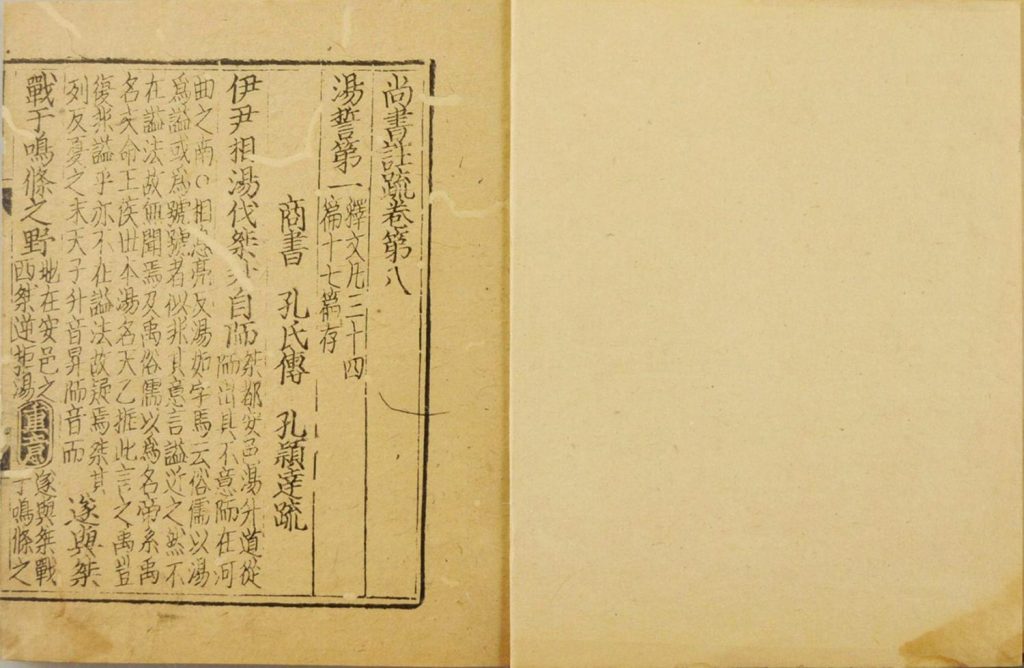 尚書註疏卷第八
湯誓第一
釋文凡三十四
篇十七篇存
商書 孔氏傳 孔穎達疏
伊尹相湯伐桀升自陑
桀都安邑湯升道從
陑出其不意陑在河
曲之南○相息亮反湯如字馬云俗儒以湯
爲謚或爲號號者似非其意言謚近之然不
在謚法故無聞焉及禹俗儒以爲名帝系禹
名文命王侯世本湯名天乙推此言之禹豈
復非謚乎亦不在謚法故疑焉桀其
列反夏之末天子升音昇陑音而
遂與桀
戰于鳴條之野
地在安邑之
西桀逆拒湯
重意
遂與桀戰
于鳴條之